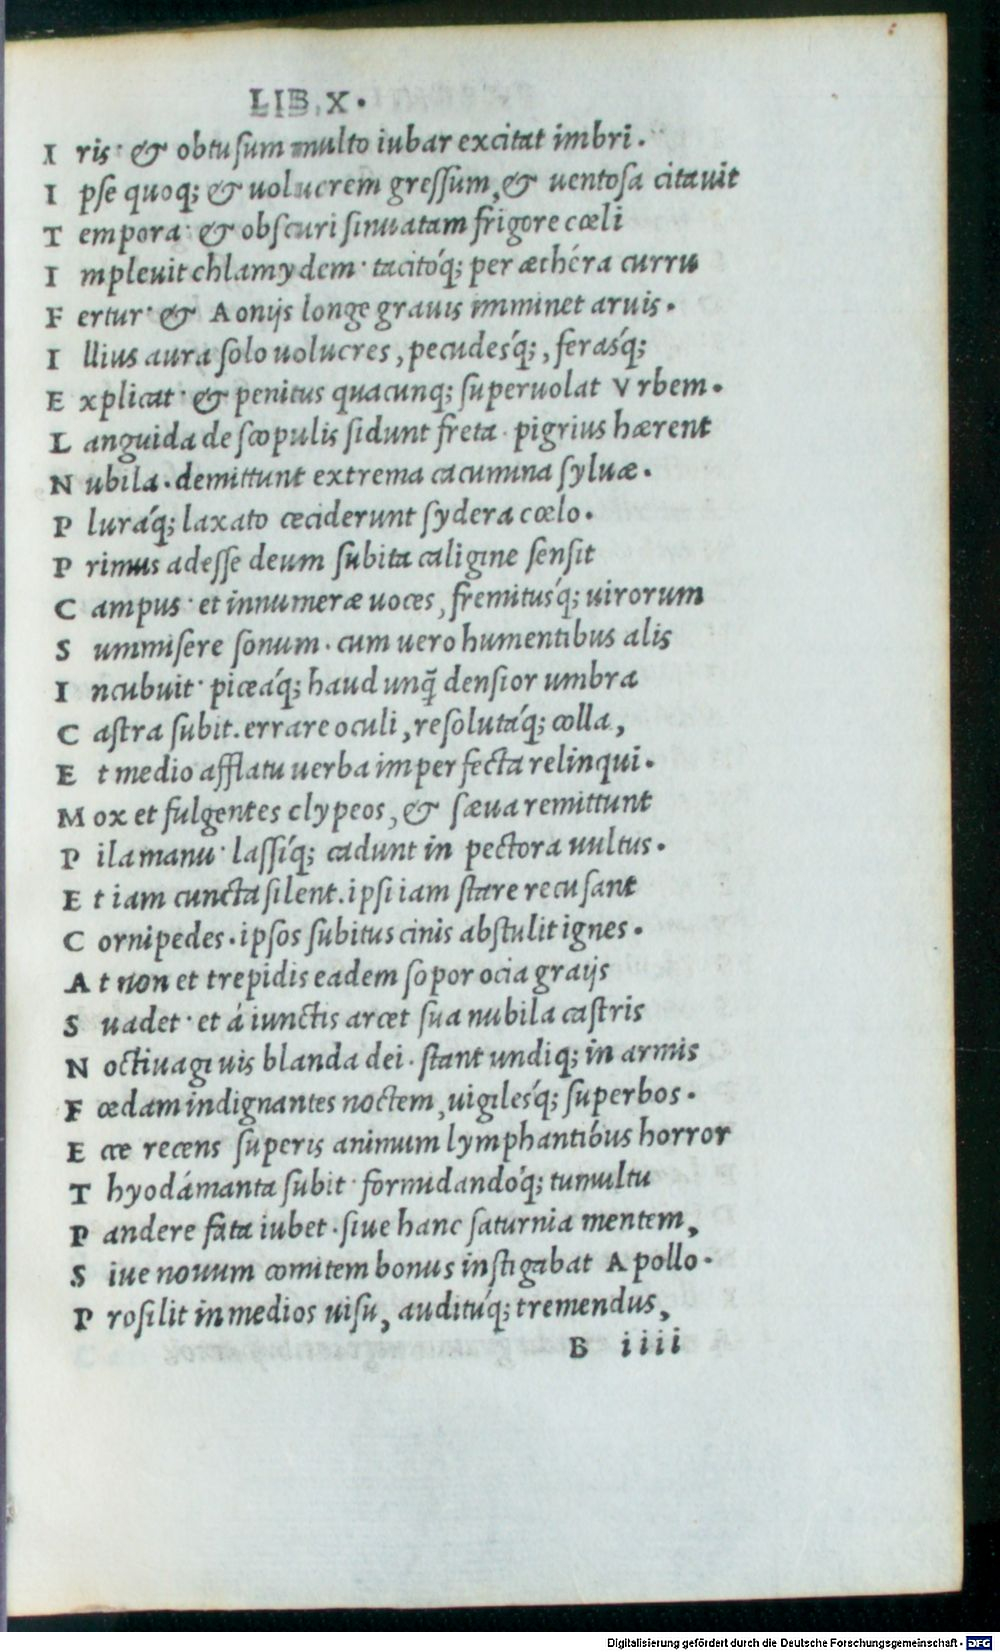 LIB. X.
I ris· & obtusum multo iubar excitat imbri.
I pse quoq; & uolucrem gressum, & uentosa citauit
T empora· & obscuri sinuatam frigore cœli
I mpleuit chlamydem· tacitóq; per æthéra curru
F ertur· & Aonijs longe grauis imminet aruis.
I llius aura solo uolucres, pecudesq́;, ferasq́;
E xplicat· & penitus quacunq; superuolat Vrbem.
L anguida de scopulis sidunt freta· pigrius hærent
N ubila. demittunt extrema cacumina syluæ.
P luráq; laxato ceciderunt sydera cœlo.
P rimus adesse deum subita caligine sensit
C ampus· et innumeræ uoces, fremitusq́; uirorum
S ummisere sonum. cum uero humentibus alis
I ncubuit· piceáq; haud unq̃ densior umbra
C astra subit. errare oculi, resolutáq; colla,
E t medio afflatu uerba imperfecta relinqui.
M ox et fulgentes clypeos, & sæua remittunt
P ila manu· lassiq́; cadunt in pectora uultus.
E t iam cuncta silent. ipsi iam stare recusant
C ornipedes. ipsos subitus cinis abstulit ignes.
A t non et trepidis eadem sopor ocia graijs
S uadet· et á iunctis arcet sua nubila castris
N octiuagi uis blanda dei. stant undiq; in armis
F œdam indignantes noctem, uigilesq́; superbos.
E cce recens superis animum lymphantibus horror
T hyodámanta subit· formidandóq; tumultu
P andere fata iubet. siue hanc saturnia mentem,
S iue nouum comitem bonus instigabat Apollo.
P rosilit in medios uisu, audituq́; tremendus,
B iiii
Digitalisierung gefördert durch die Deutsche Forschungsgemeinschaft · DFG